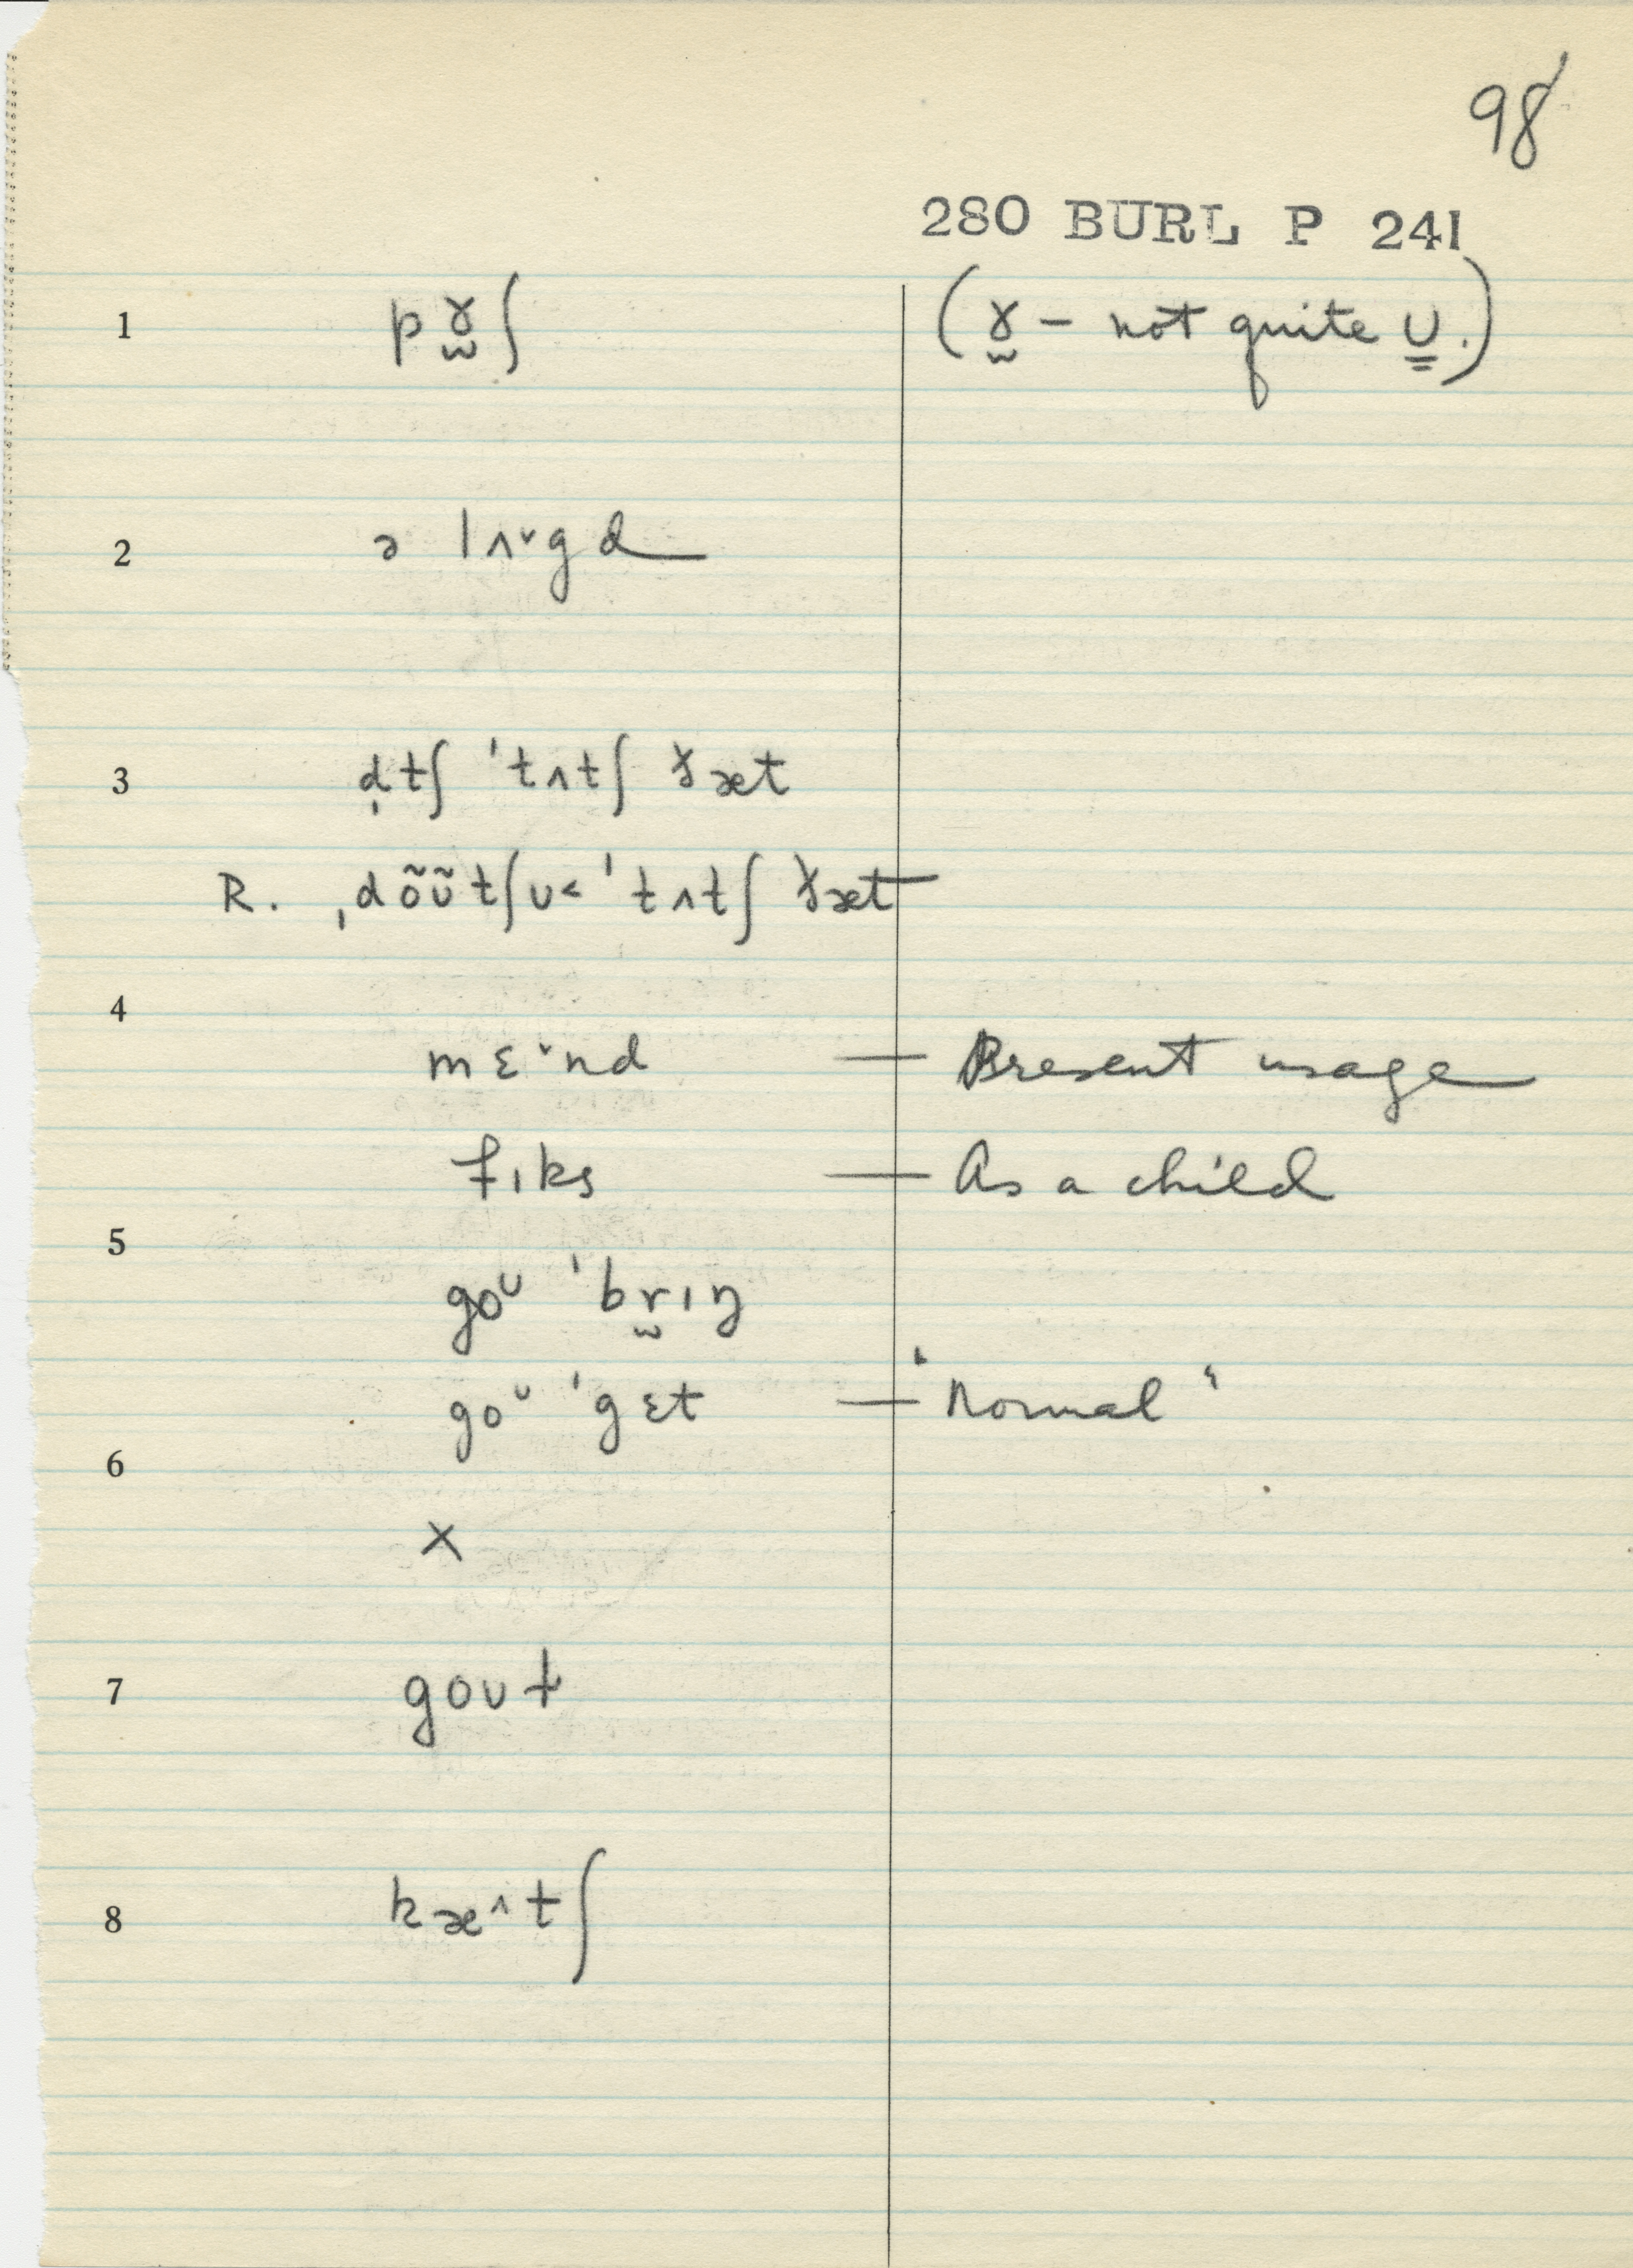 98
280 BURL P 241
1 pɤ̫ʃ (ɤ̫ – not quite ᴜ.)
2 ə lʌᵛgd
3 d̩tʃ 'tʌtʃ ɤ̵æt
R. ˌdõᴜ̃tʃᴜ< 'tʌtʃ ɤ̵æt
4
mɛᵛnd — Present usage
fɪks — As a child
5
goᶸ 'br̫ɪŋ
goᶸ 'gɛt — "Normal"
6
x
7 goᴜt
8 kæ^tʃ